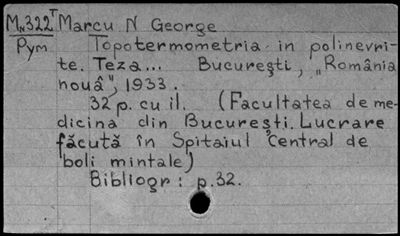 M₁₁322ᵀ Marcu N George
Pym Topotermometria in polinevri-
te. Teza... Bucureşti, „România
nouă”, 1933.
32 p. cu il. (Facultatea de me-
dicina din Bucureşti. Lucrare
făcută în Spitalul Central de
boli mintale)
Bibliogr: p.32.